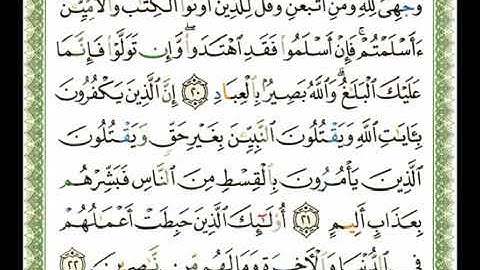 وَجْهِيَ لِلَّهِ وَمَنِ ٱتَّبَعَنِ وَقُل لِّلَّذِينَ أُوتُوا۟ ٱلْكِتَٰبَ وَٱلْأُمِّيِّۦنَ
ءَأَسْلَمْتُمْ ۚ فَإِنْ أَسْلَمُوا۟ فَقَدِ ٱهْتَدَوا۟ ۖ وَّإِن تَوَلَّوْا۟ فَإِنَّمَا
عَلَيْكَ ٱلْبَلَٰغُ ۗ وَٱللَّهُ بَصِيرٌۢ بِٱلْعِبَادِ ٢٠ إِنَّ ٱلَّذِينَ يَكْفُرُونَ
بِـَٔايَٰتِ ٱللَّهِ وَيَقْتُلُونَ ٱلنَّبِيِّۦنَ بِغَيْرِ حَقٍّ وَيَقْتُلُونَ
ٱلَّذِينَ يَأْمُرُونَ بِٱلْقِسْطِ مِنَ ٱلنَّاسِ فَبَشِّرْهُم
بِعَذَابٍ أَلِيمٍ ٢١ أُو۟لَٰٓئِكَ ٱلَّذِينَ حَبِطَتْ أَعْمَٰلُهُمْ
فِى ٱلدُّنْيَا وَٱلْـَٔاخِرَةِ وَمَا لَهُم مِّن نَّٰصِرِينَ ٢٢